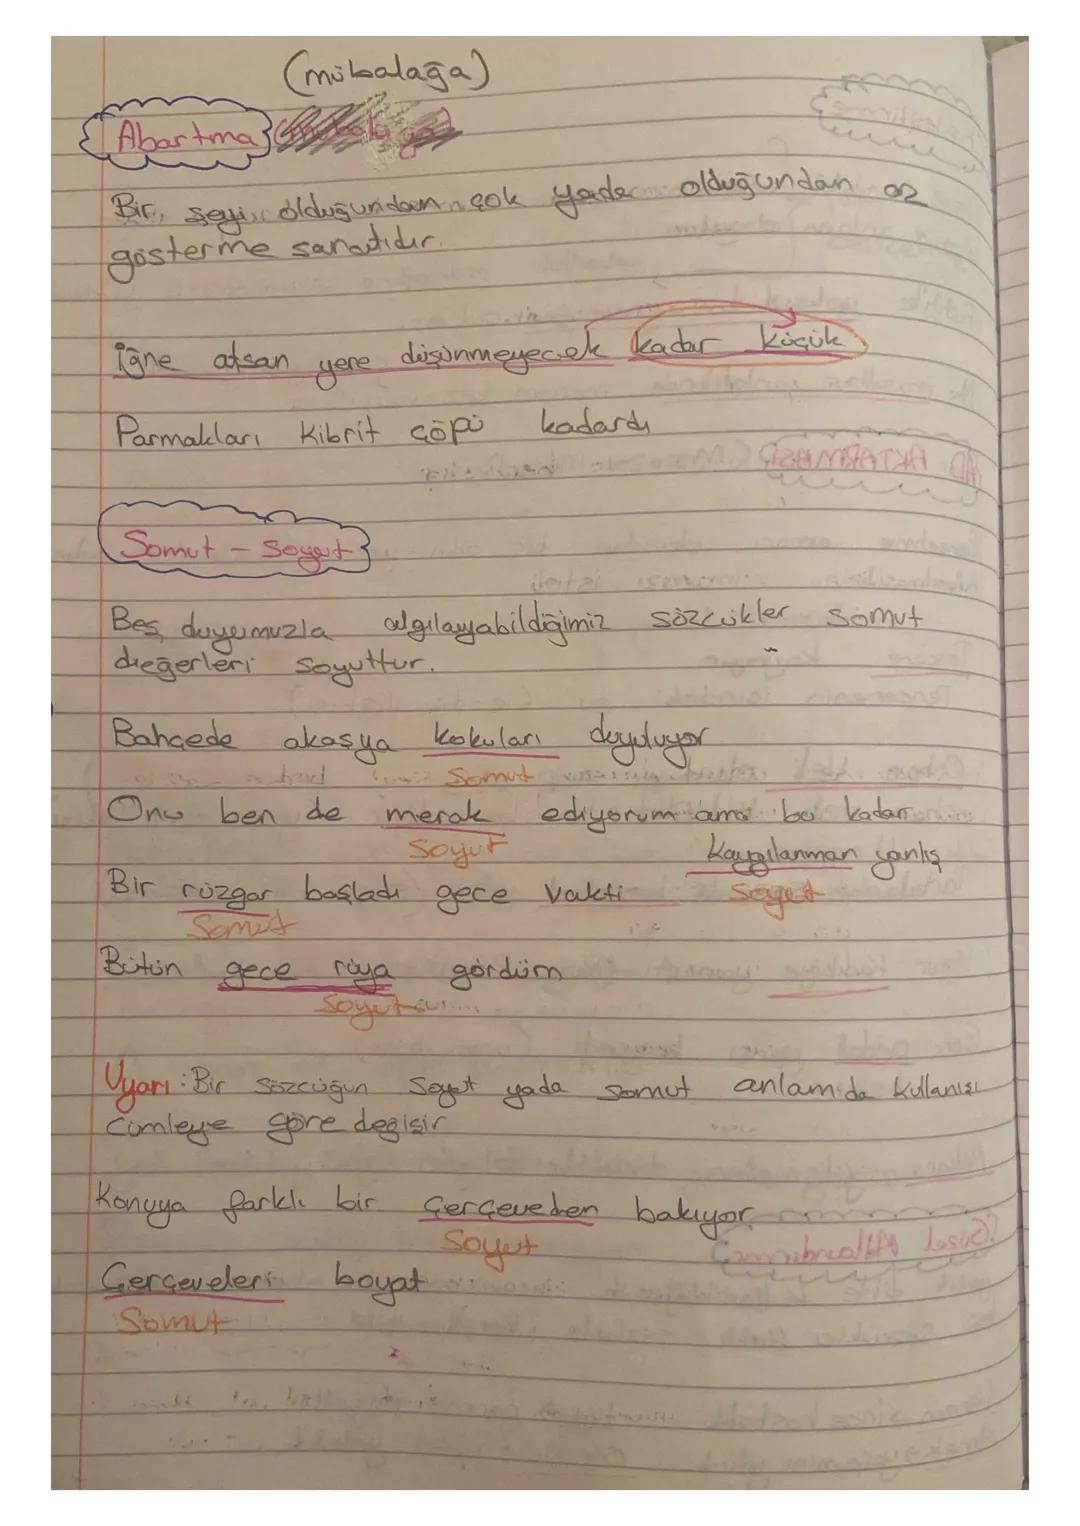 (mübalağa)
Abartma
Bir şeyi olduğundan çok yada olduğundan az
gösterme sanatıdır.
iğne atsan yere düşünmeyecek kadar küçük
Parmakları kibrit çöpü kadardı
Somut - Soyut
Beş duyumuzla algılayabildiğimiz sözcükler somut
dieğerleri soyuttur.
Bahçede akasya kokuları duyuluyor
Somut
Onu ben de merak ediyorum ama bu kadar
Soyut
kaygılanman yanlış
Soyut
Bir rüzgar başladı gece vakti
Somut
Bütün gece rüya gördüm
Soyut
Uyarı: Bir sözcüğün Soyut yada somut anlamda kullanışı
cümleye göre değişir
Konuya farklı bir çerçeveden bakıyor
Soyut
Çerçeveleri boyat
Somut